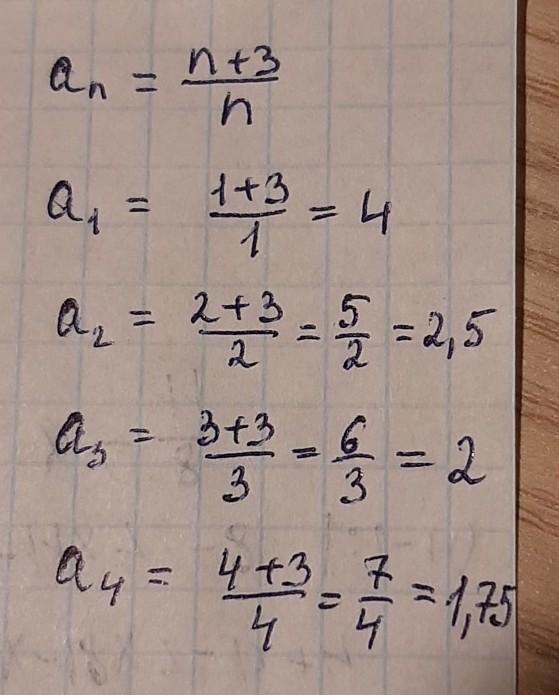 aₙ = (n+3)/n
a₁ = (1+3)/1 = 4
a₂ = (2+3)/2 = 5/2 = 2,5
a₃ = (3+3)/3 = 6/3 = 2
a₄ = (4+3)/4 = 7/4 = 1,75